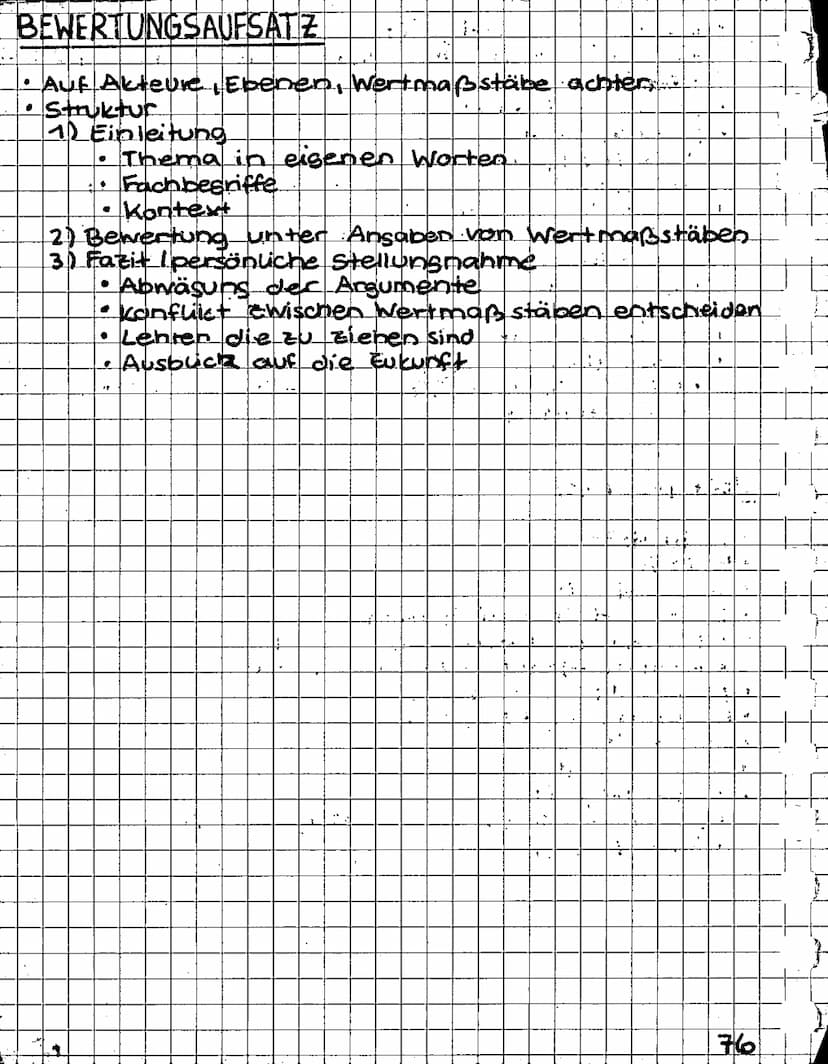 BEWERTUNGSAUFSATZ
• Auf Akteure, Ebenen, Wertmaßstäbe achten
• Struktur
1) Einleitung
• Thema in eigenen Worten
• Fachbegriffe
• Kontext
2) Bewertung unter Angaben von Wertmaßstäben
3) Fazit / persönliche Stellungnahme
• Abwägung der Argumente
• Konflikt zwischen Wertmaßstäben entscheiden
• Lehren die zu ziehen sind
• Ausblick auf die Zukunft
76